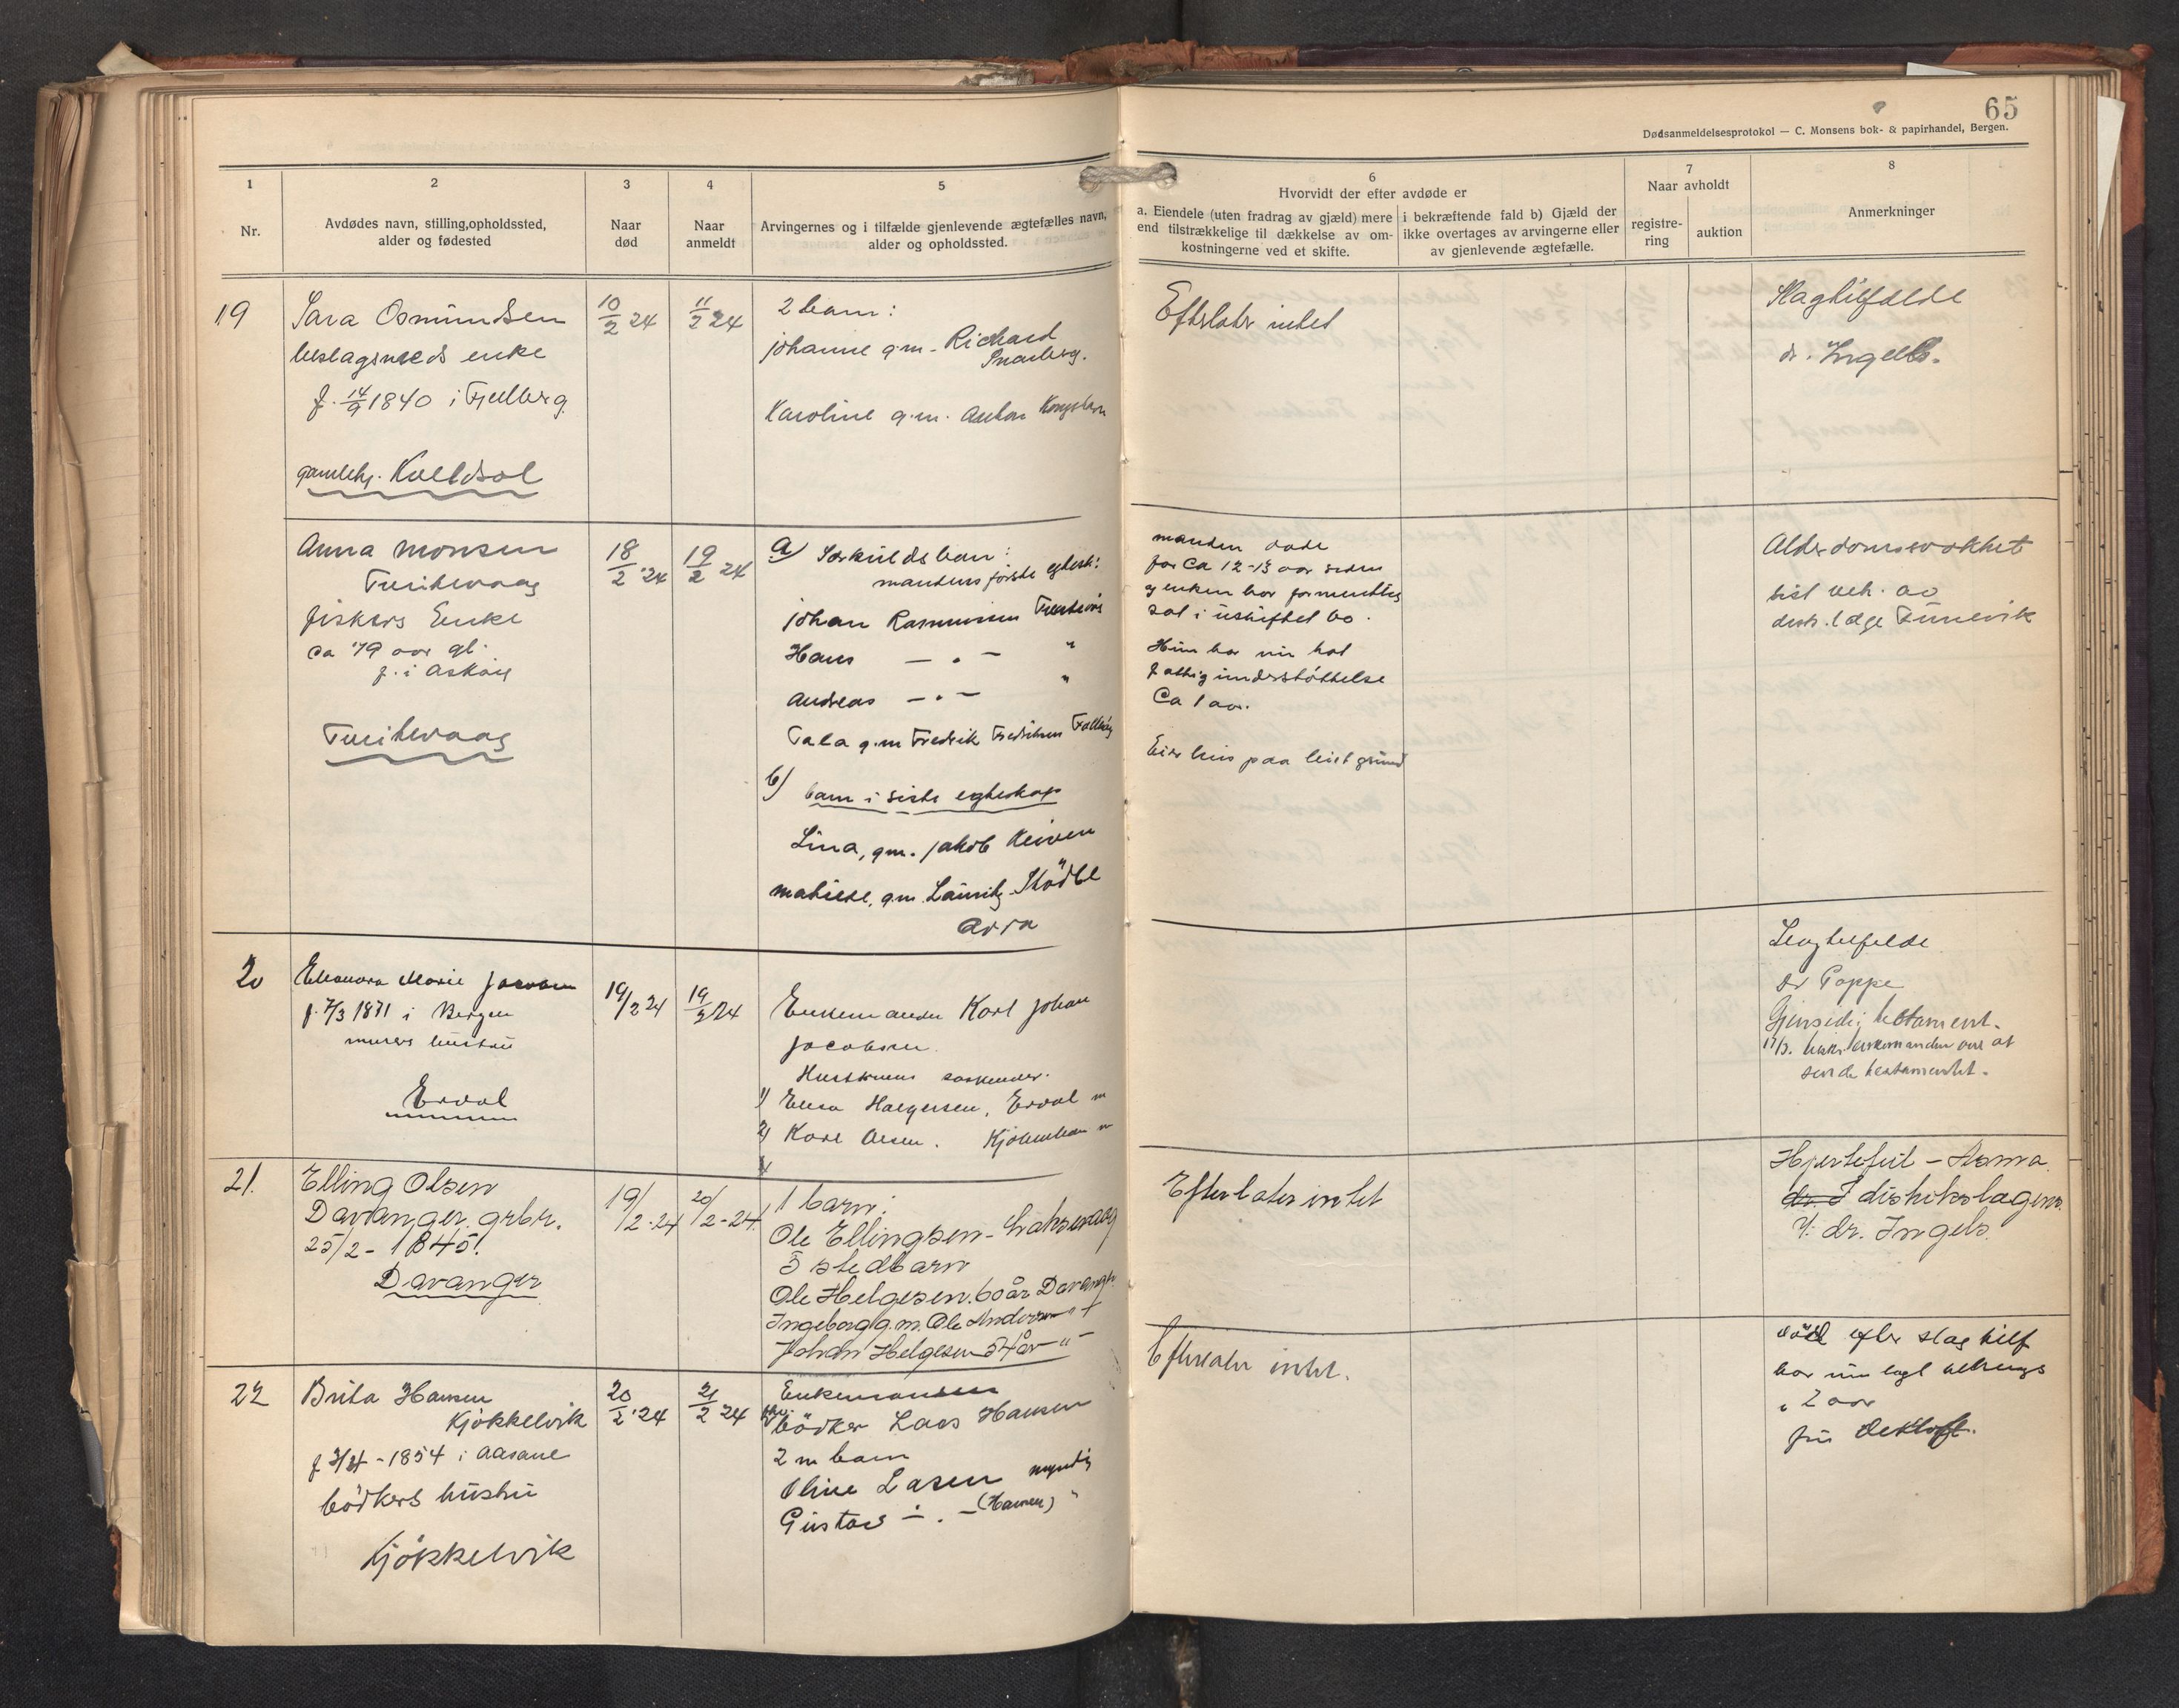 65
Dødsanmeldelsesprotokol — C. Monsens bok- & papirhandel, Bergen.
1
Nr.
2
Avdødes navn, stilling, opholdssted,
alder og fødested
3
Naar
død
4
Naar
anmeldt
5
Arvingernes og i tilfælde gjenlevende ægtefælles navn,
alder og opholdssted.
6
Hvorvidt der efter avdøde er
a. Eiendele (uten fradrag av gjæld) mere
end tilstrækkelige til dækkelse av om-
kostningerne ved et skifte.
i bekræftende fald b) Gjæld der
ikke overtages av arvingerne eller
av gjenlevende ægtefælle.
7
Naar avholdt
registre-
ring
auktion
8
Anmerkninger
19
Sara Osmundsen
enke
f. 14/9 1840 i Fjelberg
gamlehj. Kveldsol
10/2 24
11/2 24
2 barn:
Johanne g.m. Richard
Karoline g.m. Anton
Efterlater intet
Slagtilfælde
dr. Ingels.
Anna Monsen
fiskers Enke
ca 79 aar gl.
f. i Askøy
18/2 24
19/2 24
a) Særkuldsbarn:
mandens første egtesk:
Johan Rasmussen
Hans — " — "
Andreas — " — "
g.m Fredrik Fredriksen
b) barn i siste egteskap
Lina, g.m. Jakob
g.m. Lauritz
manden døde
for ca 12-13 aar siden
og enken har formentlig
sat i uskiftet bo.
Hun har nu hat
fattigunderstøttelse
Ca 1 aar.
Eier hus paa leiet grund
Alderdomssvakhet
20
Eleonora Marie Jacobsen
f. 7/3 1871 i Bergen
murers hustru
Ervol
19/2 24
19/2 24
Enkemanden Karl Johan
Jacobsen.
Hustruens søskender.
1) Elisa Halgersen, Ervol m
2) Karl Olsen. Kjøbenhavn m
Slagtilfælde
dr Poppe
Gjensidig testament.
sende testamentet.
21.
Elling Olsen
Davanger. grbr.
25/2 - 1845.
Davanger
19/2 - 24
20/2 - 24.
1 barn:
Ole Ellingsen - Laksevaag
3 stedbarn
Ole Helgesen. 60 år Davanger
Ingeborg g.m. Ole Andersen " +
Johan Helgesen 54 år — " —
Efterlater intet
Hjertefeil - Astma.
dr. I distriktslægens
V: dr. Ingels.
22
Brita Hansen
Kjøkkelvik
f. - 1854 i Aasane
bødkers hustru
Kjøkkelvik
20/2 24
21/2 24
Enkemanden
fhv. bødker Lars Hansen
2 m barn
Oline Larsen myndig
Gustav — " — (Hansen) "
Efterlater intet.
død efter slagtilf
har nu lagt
i 2 aar